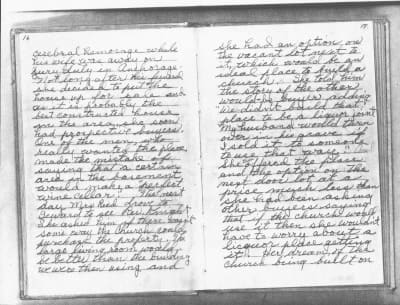 16
cerebral hemorage while
his wife was away on
jury duty in Anchorage.
Not long after his funeral
she decided to put the
house up for sale and
as it is probably the
best constructed house
in the area she soon
had prospective buyers.
One of the men, who
really wanted the place
made the mistake of
saying that a certain
area in the basement
would make a perfect
wine cellar. The next
day Mrs. Reid drove to
Seward to see
she asked him if there wasn't
some way the church could
purchase the property. The
large living room would
be better than the building
we were then using and
17
she had an option on
the vacant lot next to
it, which would be an
ideal place to build a
church. She told him
the story of the other
would be buyer adding
"We didn't build that
place to be a liquor joint
My husband would turn
over in his grave if
I sold it to someone
to use that way."
She offered the place
and the option on the
next door lot at a
price much less than
she had been asking
other buyers saying
that if the church would
use it then she wouldn't
have to worry about a
liquor place getting
it. Her dream of the
church being built on